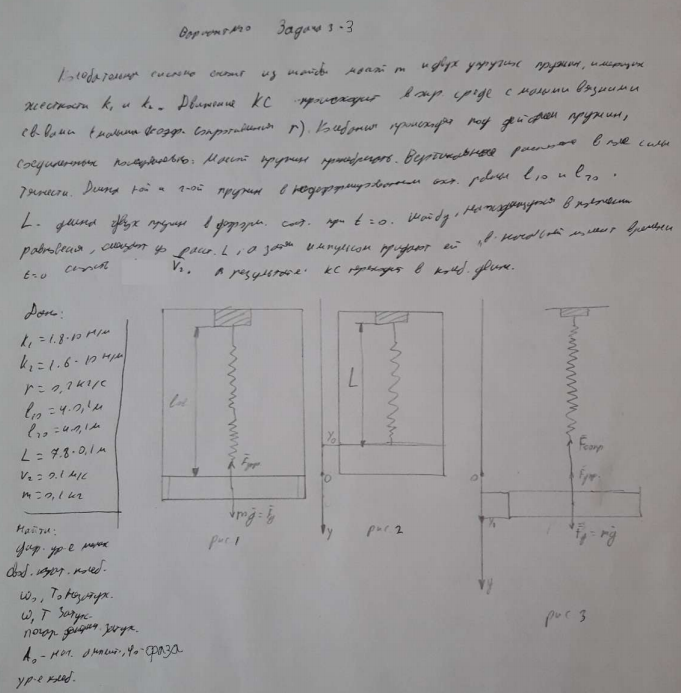 Вариант №10 Задача 3-3
Колебательная система состоит из шайбы массой m и двух упругих пружин, имеющих
жесткости k₁ и k₂. Движение КС происходит в среде с малыми вязкими
св-вами (малый коэф. сопротивления r). Колебания происходят под действием пружин,
соединенных Массой пружин пренебречь. в поле силы
тяжести. Длина 1-ой и 2-ой пружин в недеформированном сост. равны l₁₀ и l₂₀.
L - длина двух пружин в сост. при t=0. Шайбу, находящуюся в положении
равновесия, смещают до расст. L, а затем импульсом придают ей в начальный момент времени
t=0 V₂. В результате КС приходит в колеб. движ.
Дано:
k₁ = 1.8·10 Н/м
k₂ = 1.6·10 Н/м
r = 0,2 кг/с
l₁₀ = 4·0,1 м
l₂₀ = 4·0,1 м
L = 7.8·0,1 м
V₂ = 0.1 м/с
m = 0,1 кг
Найти:
диф. ур-е
колеб.
ω₀, T₀ незатух.
ω, T затух.
затух.
A₀ - нач. амплит., φ₀ - фаза
ур-е колеб.
F̄упр
mḡ = F̄g
рис. 1
L
y₀
0
y
рис 2
F̄сопр
F̄упр
0
F̄g = mḡ
y
рис 3